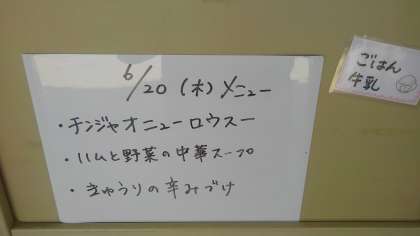 6/20(木)メニュー
・チンジャオニューロウスー
・ハムと野菜の中華スープ
・きゅうりの辛みづけ
ごはん
牛乳